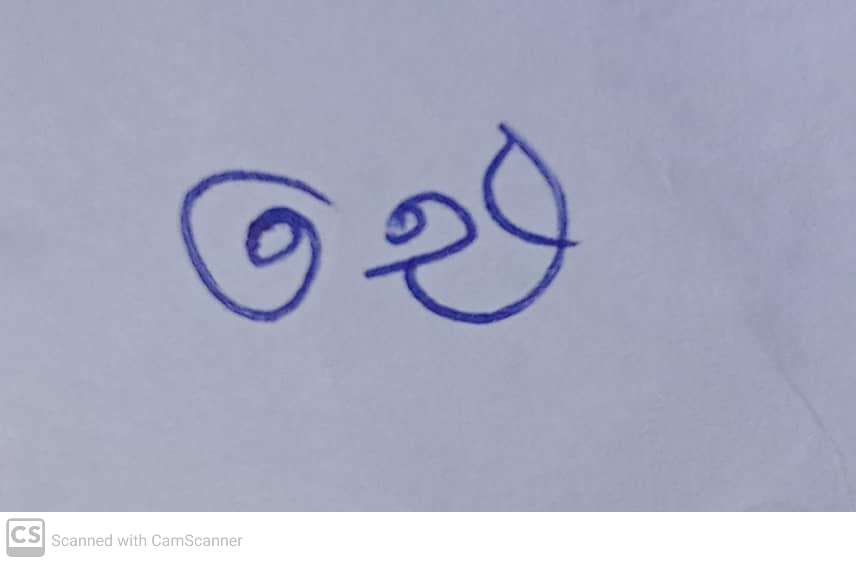 ତଇ
Scanned with CamScanner